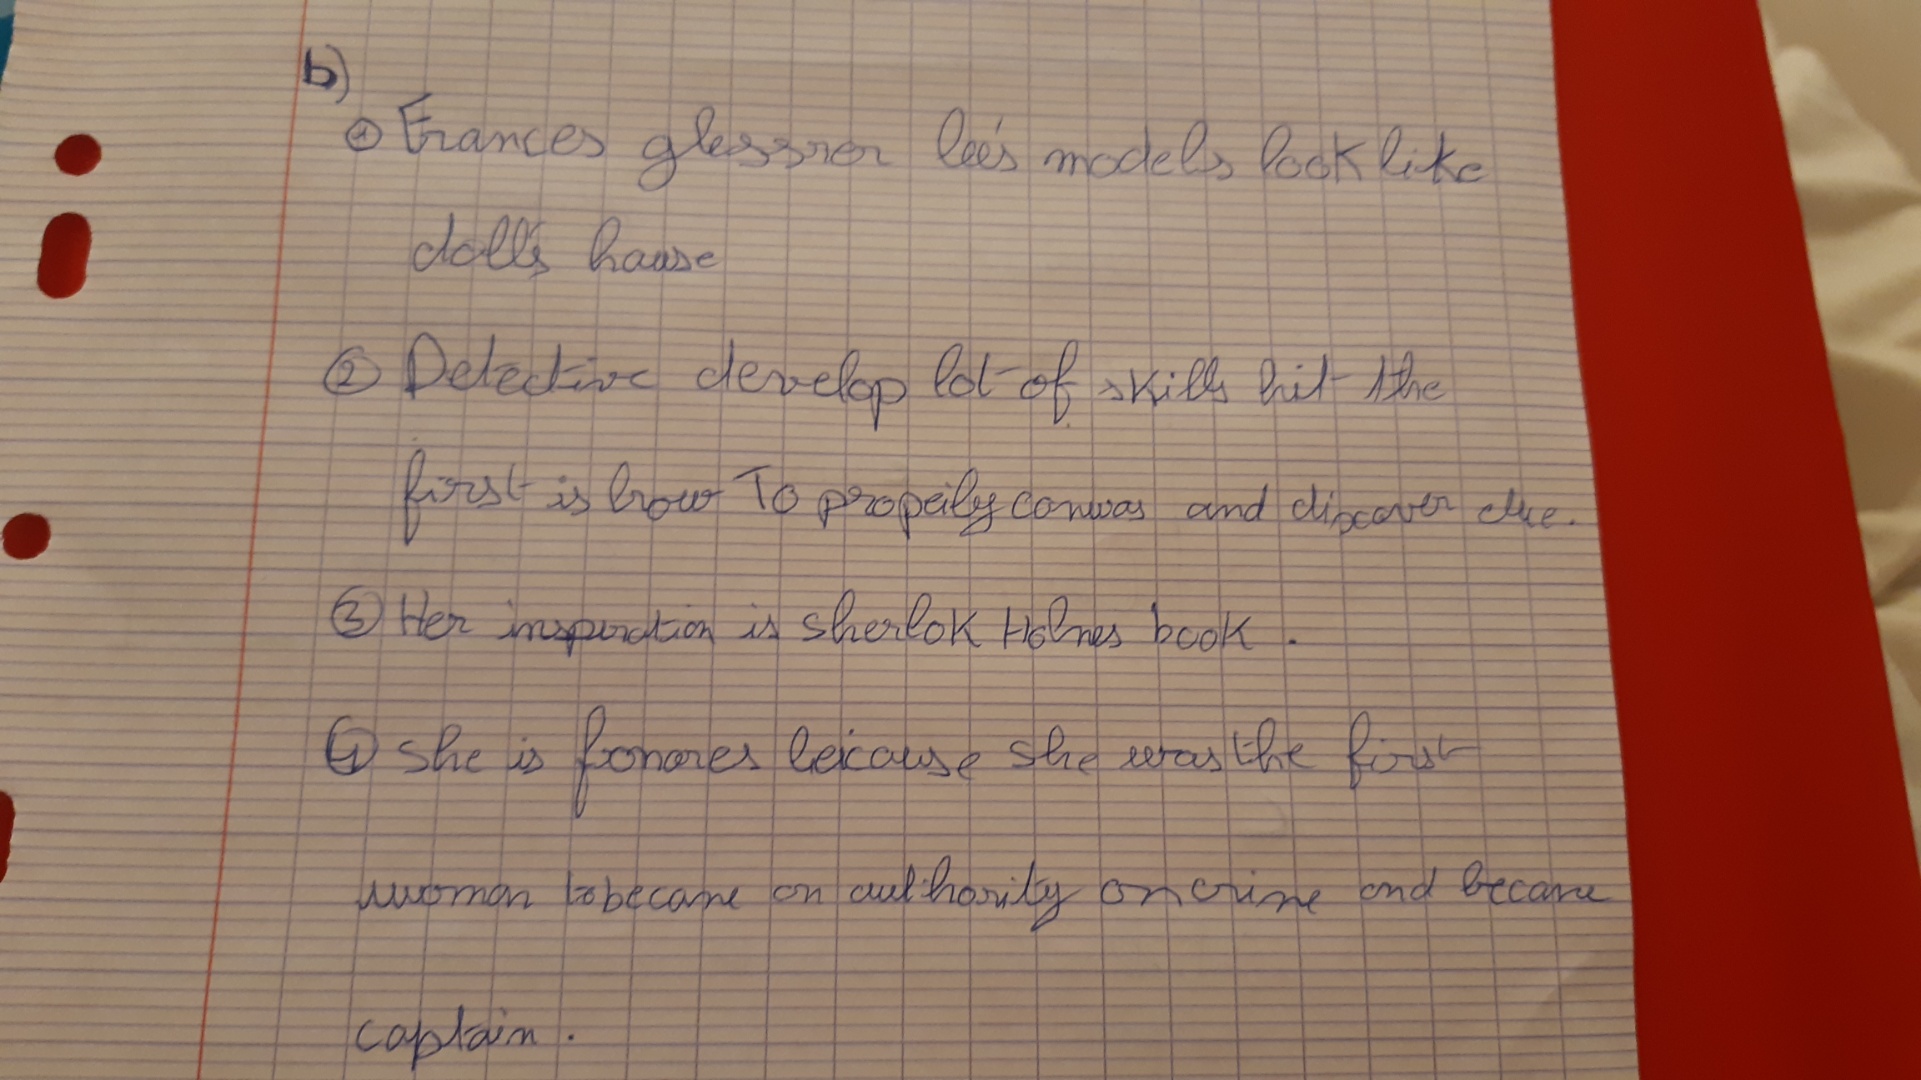 b)
① Frances glessner lee's models look like
doll's hause
② Detective develop lot of skills but the
first is how To properly canvas and discover clue.
③ Her inspiration is sherlok Holmes book .
④ she is famores because she was the first
woman to became an authority on crime and became
captain .